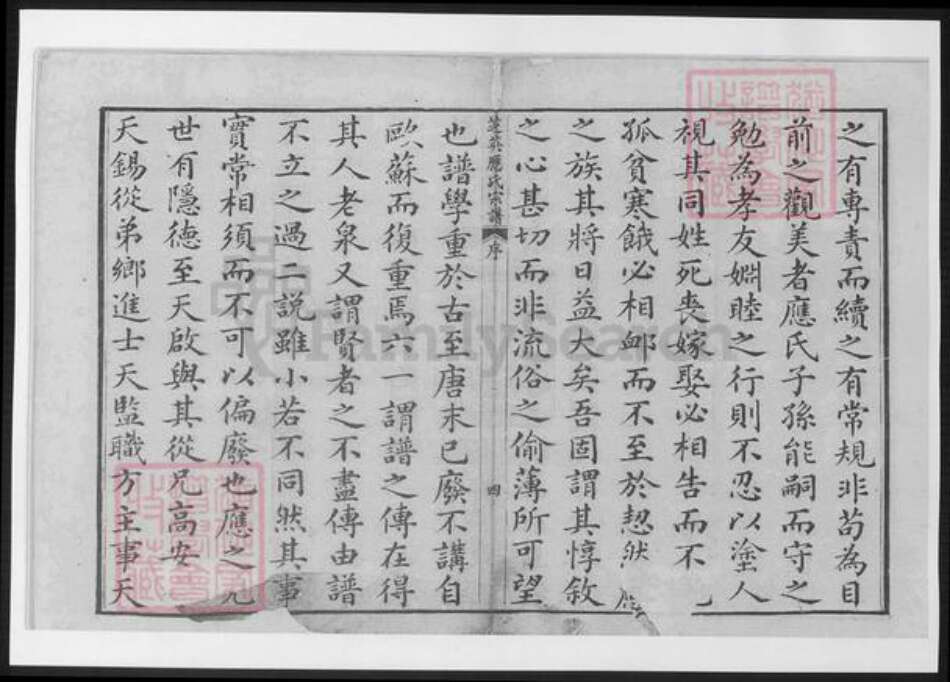 之有專責而續之有常規非苟為目
前之觀美者應氏子孫能嗣而守之
勉為孝友婣睦之行則不忍以塗人
視其同姓死喪嫁娶必相告而不
孤貧寒餓必相卹而不至於恝然
之族其將日益大矣吾固謂其惇敘
之心甚切而非流俗之偷薄所可望
芝英應氏宗譜 序 四
也譜學重於古至唐末已廢不講自
歐蘇而復重焉六一謂譜之傳在得
其人老泉又謂賢者之不盡傳由譜
不立之過二說雖小若不同然其事
實常相須而不可以偏廢也應之先
世有隱德至天啟與其從兄高安
天錫從弟鄉進士天監職方主事天
FamilySearch